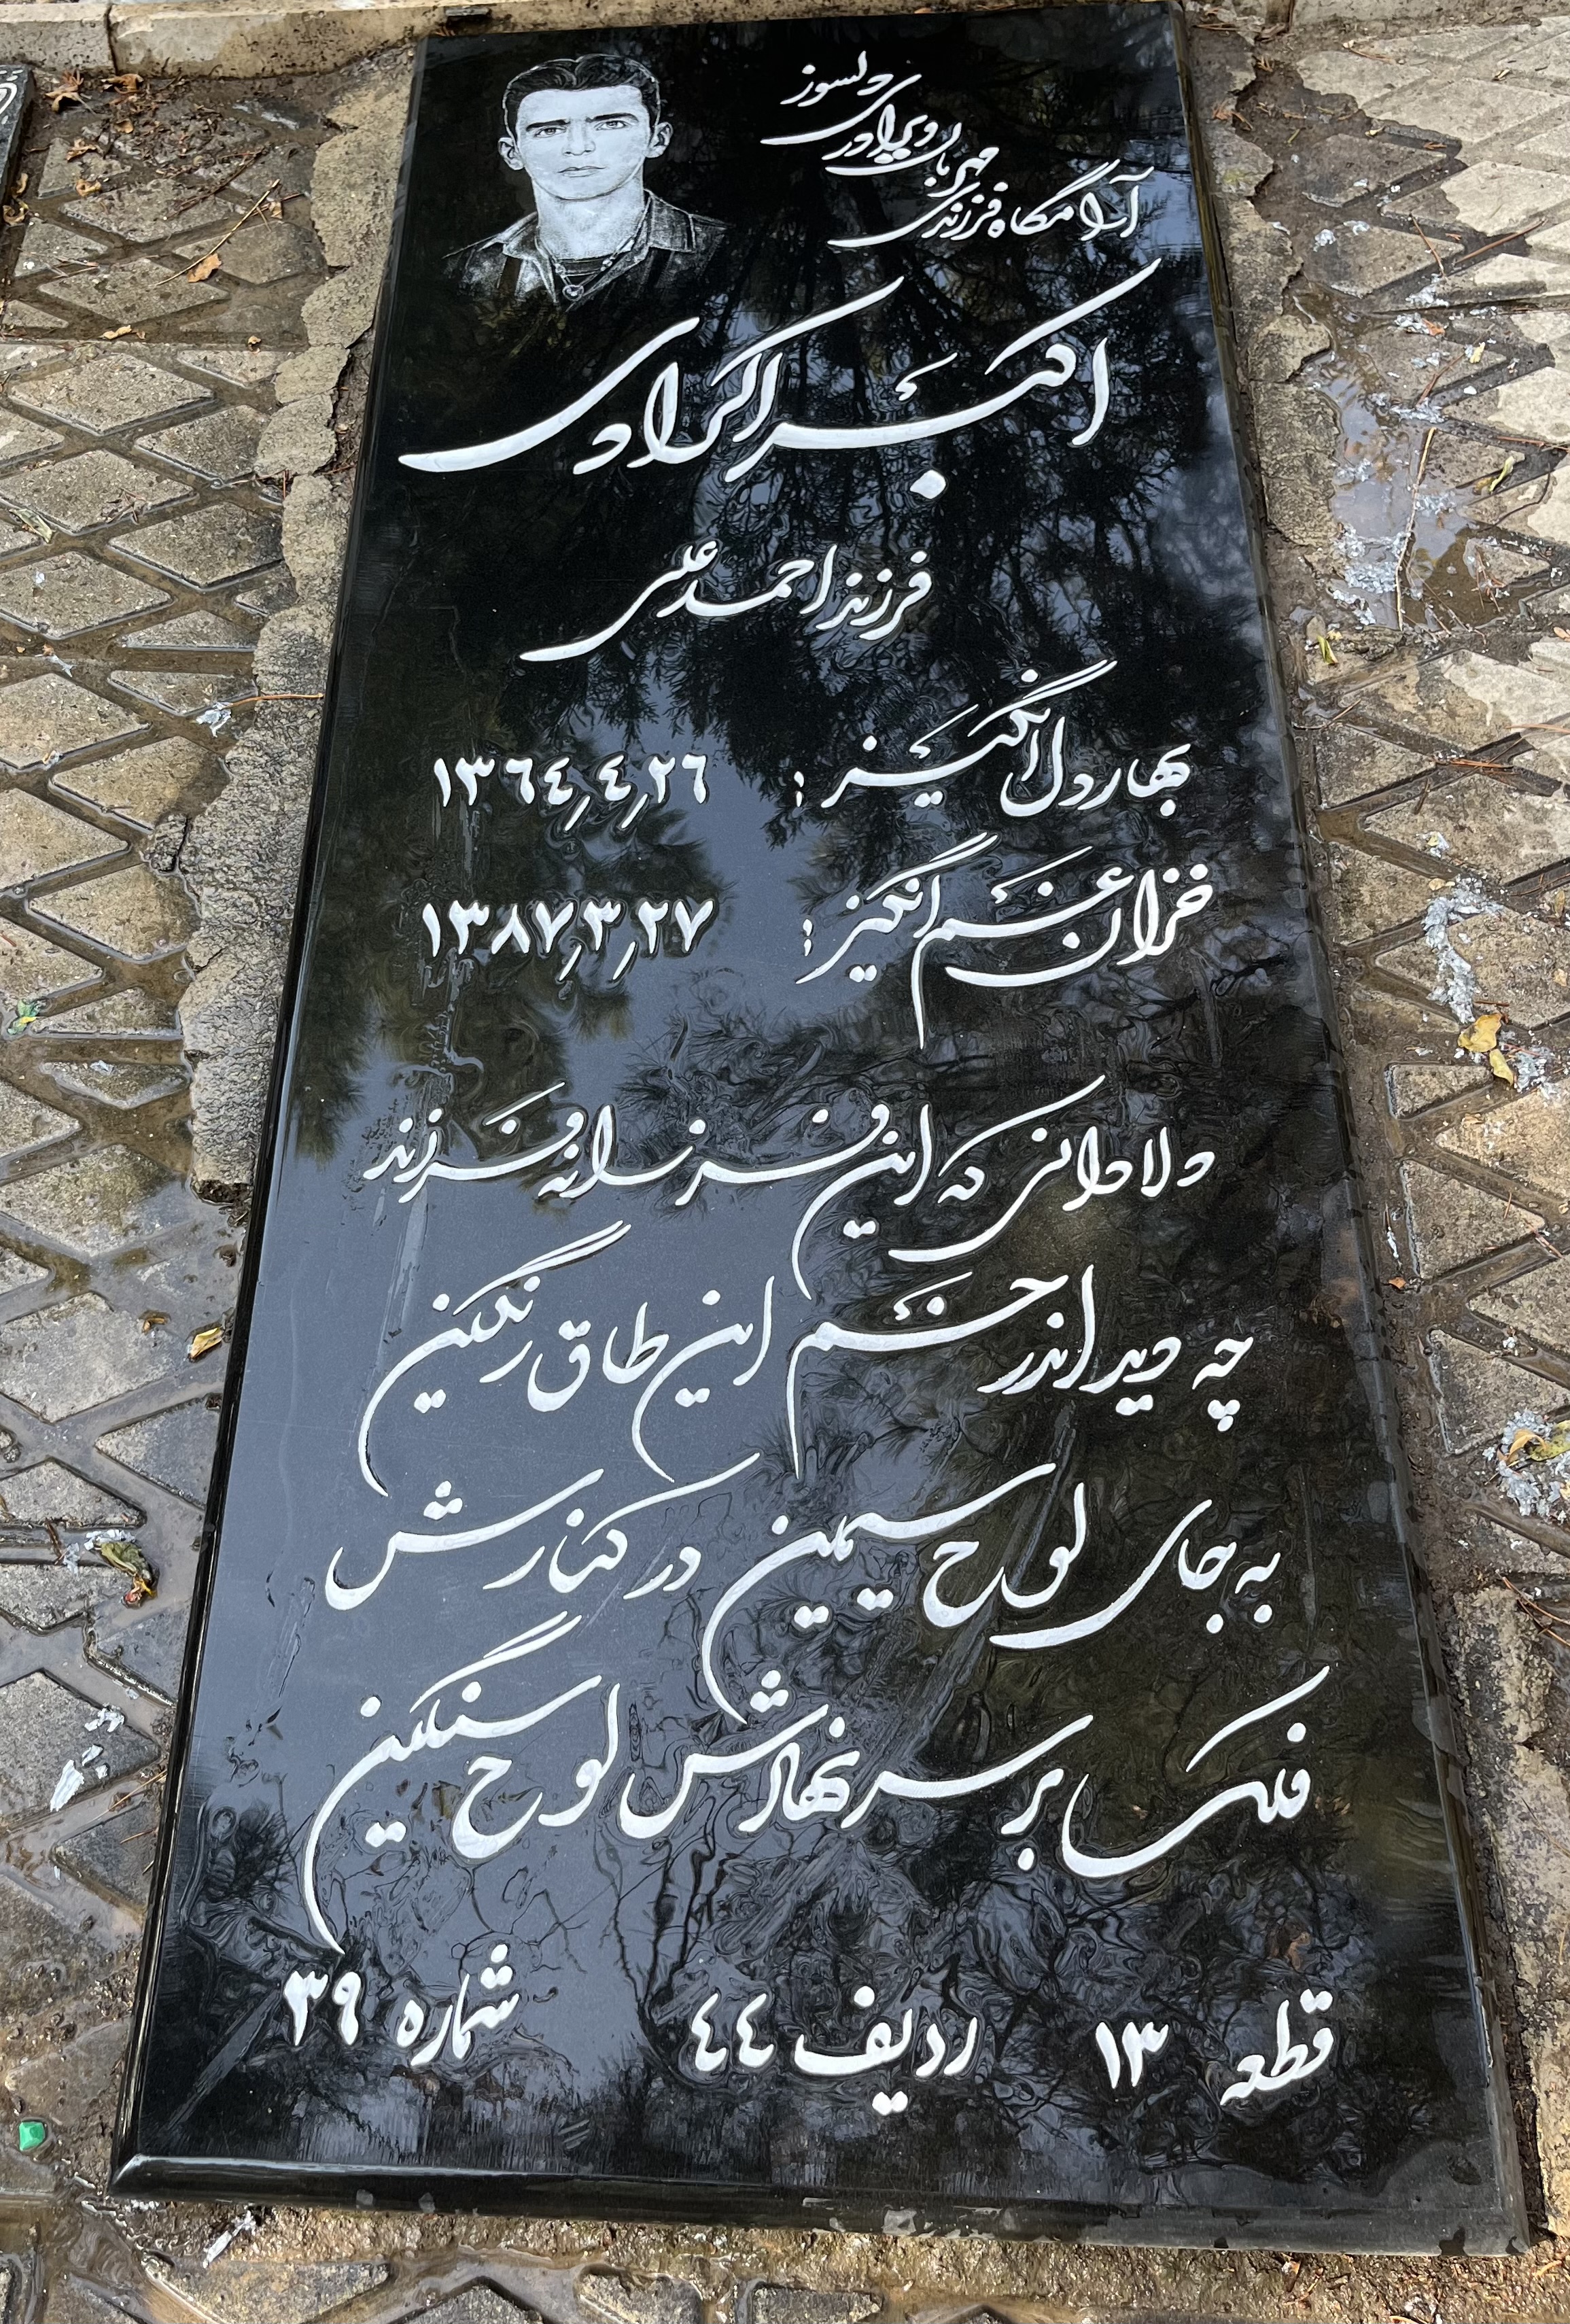 آرامگاه فرزندی مهربان و برادری دلسوز
اکبر اکرادی
فرزند احمدعلی
بهار دل انگیز : ۲۶٫۴٫۱۳۶۴
خزان غم انگیز : ۲۷٫۳٫۱۳۸۷
دلا دانی که این فرزانه فرزند
چه دید اندر خم این طاق رنگین
به جای لوح سیمین در کنارش
فلک بر سر نهادش لوح سنگین
قطعه ۱۳ ردیف ۴۴ شماره ۳۹